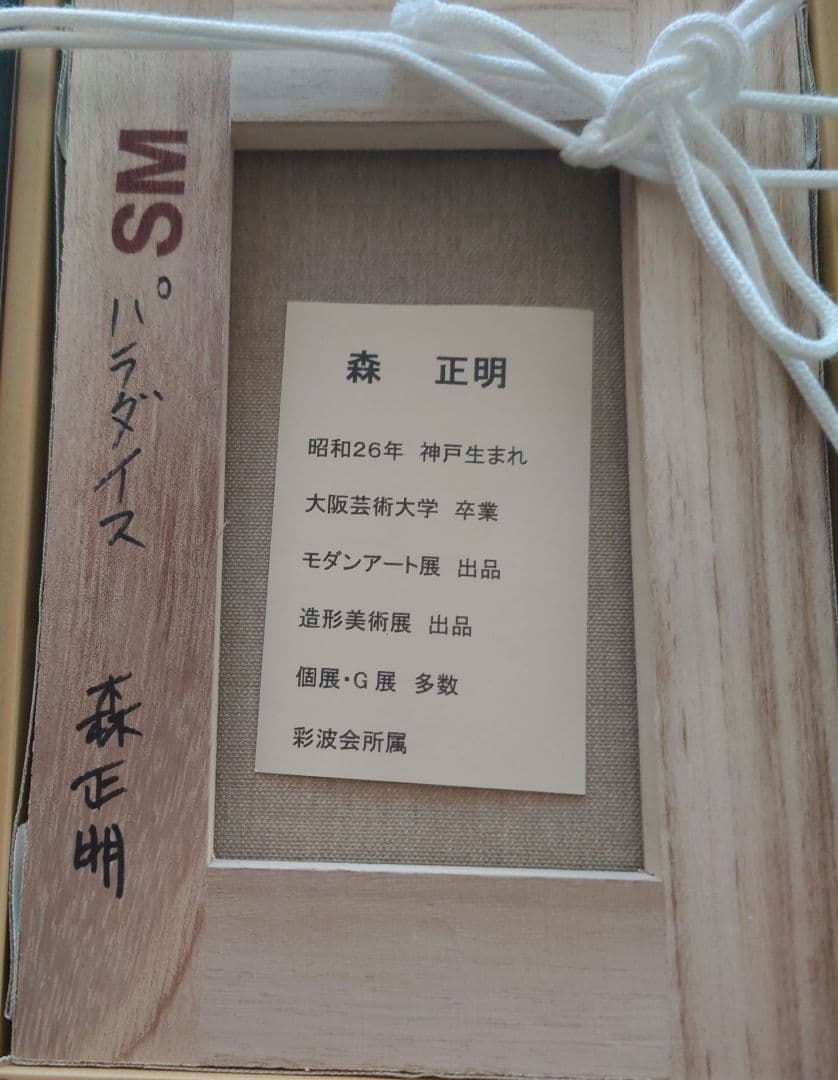 SM
パラダイス
森正明
森 正明
昭和26年 神戸生まれ
大阪芸術大学 卒業
モダンアート展 出品
造形美術展 出品
個展・G展 多数
彩波会所属